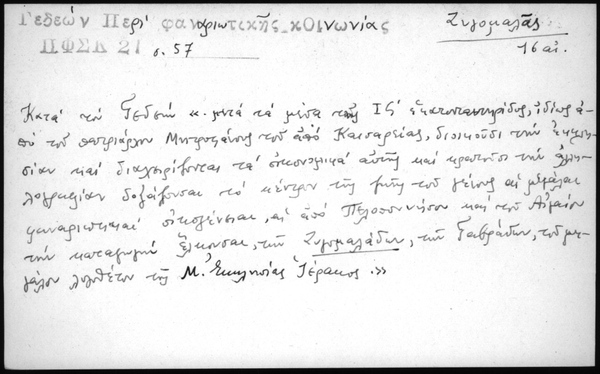 Γεδεών Περί φαναριωτικῆς κοινωνίας
Ζυγομαλᾶς
ΠΦΣΚ 21 σ. 57
16 αἰ.
Κατά τόν Γεδεών κ. μετά τά μέσα τῆς ΙϚ' ἑκατονταετηρίδος, ἰδίως ἀ-
πό τοῦ πατριάρχου Μητροφάνους τοῦ ἀπό Καισαρείας, διοικοῦσι τήν ἐκκλη-
σίαν καί διαχειρίζονται τά οἰκονομικά αὐτῆς καί κρατοῦσι τήν ἀλλη-
λογραφίαν δοξάζουσαι τό κέντρον τῆς ζωῆς τοῦ γένους αἱ μεγάλαι
φαναριωτικαί οἰκογένειαι, αἱ ἀπό Πελοποννήσου καί τοῦ Αἰγαίου
τήν καταγωγήν ἕλκουσαι, τήν Ζυγομαλάδων, τήν Γαβράδων, τοῦ με-
γάλου λογοθέτου τῆς Μ. Ἐκκλησίας Ἱέρακος.»